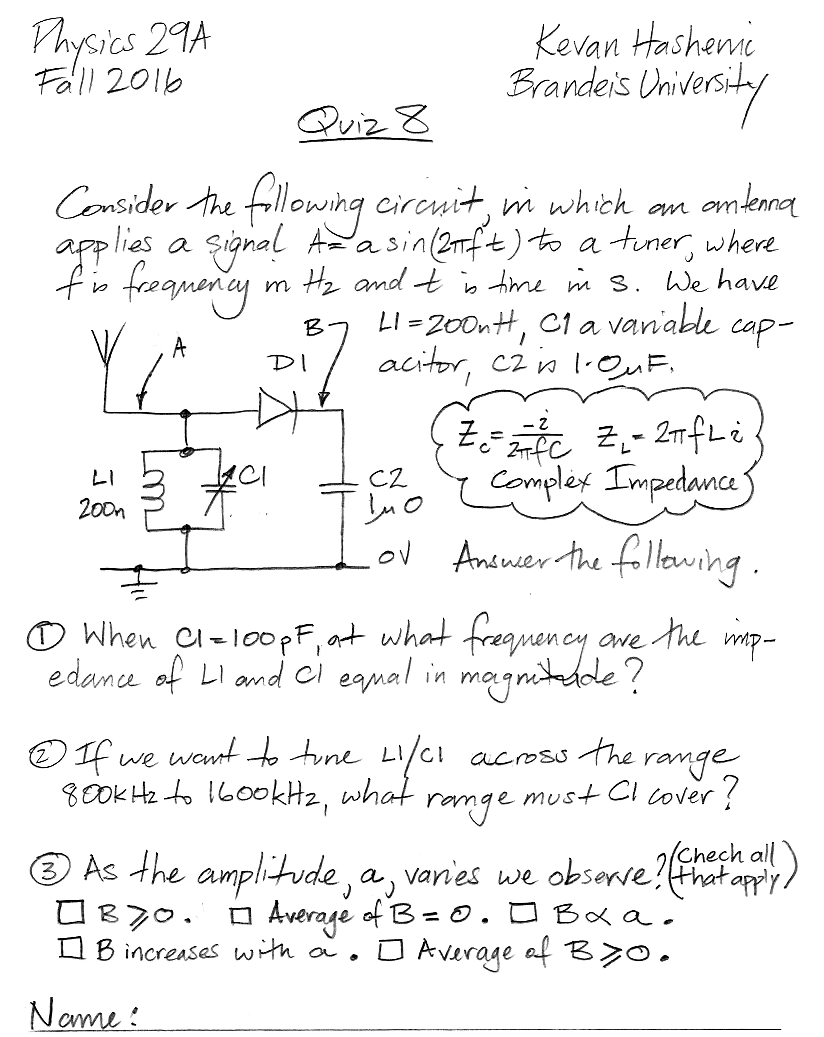 Physics 29A
Kevan Hashemi
Fall 2016
Brandeis University
Quiz 8
Consider the following circuit, in which an antenna
applies a signal A = a sin(2πft) to a tuner, where
f is frequency in Hz and t is time in s. We have
L1=200nH, C1 a variable cap-
acitor, C2 is 1.0μF.
A
B
D1
L1
200n
C1
C2
1μ0
0V
Zc = -i/2πfC ZL = 2πfLi
Complex Impedance
Answer the following.
① When C1=100pF, at what frequency are the imp-
edance of L1 and C1 equal in magnitude?
② If we want to tune L1/C1 across the range
800kHz to 1600kHz, what range must C1 cover?
③ As the amplitude, a, varies we observe? (Chech all
that apply)
☐ B⩾0. ☐ Average of B = 0. ☐ B∝a.
☐ B increases with a. ☐ Average of B⩾0.
Name: